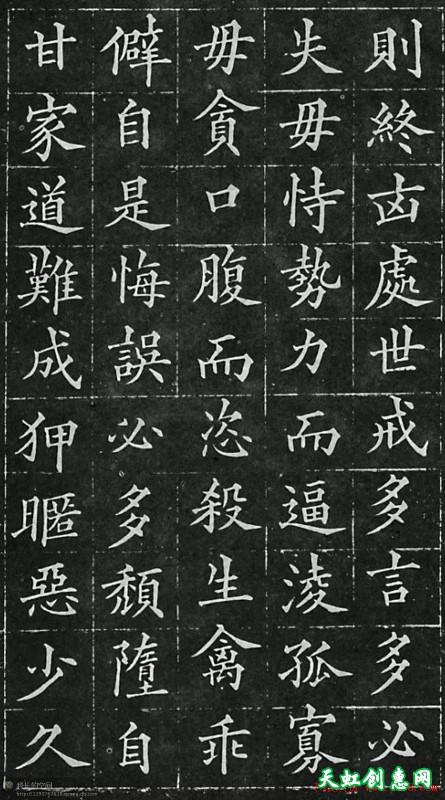 則終凶處世戒多言多必
失毋恃勢力而逼淩孤寡
毋貪口腹而恣殺生禽乖
僻自是悔誤必多頹墮自
甘家道難成狎暱惡少久
天虹创惠网